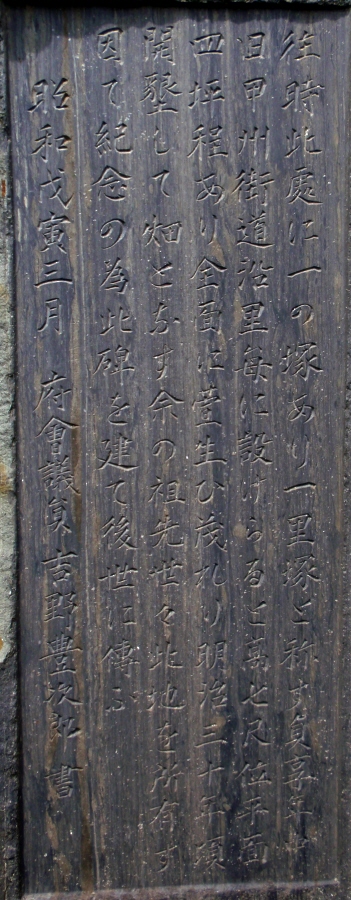 往時此處に一の塚あり一里塚と称す貞享年中
旧甲州街道沿里每に設けらると高七尺位平面
四坪程あり全面に萱生ひ茂れり明治三十年頃
開墾して畑と為す余の祖先世々此地を所有す
因て紀念の為此碑を建て後世に傳ふ
昭和戊寅三月 府會議員 吉野豊次郎 書